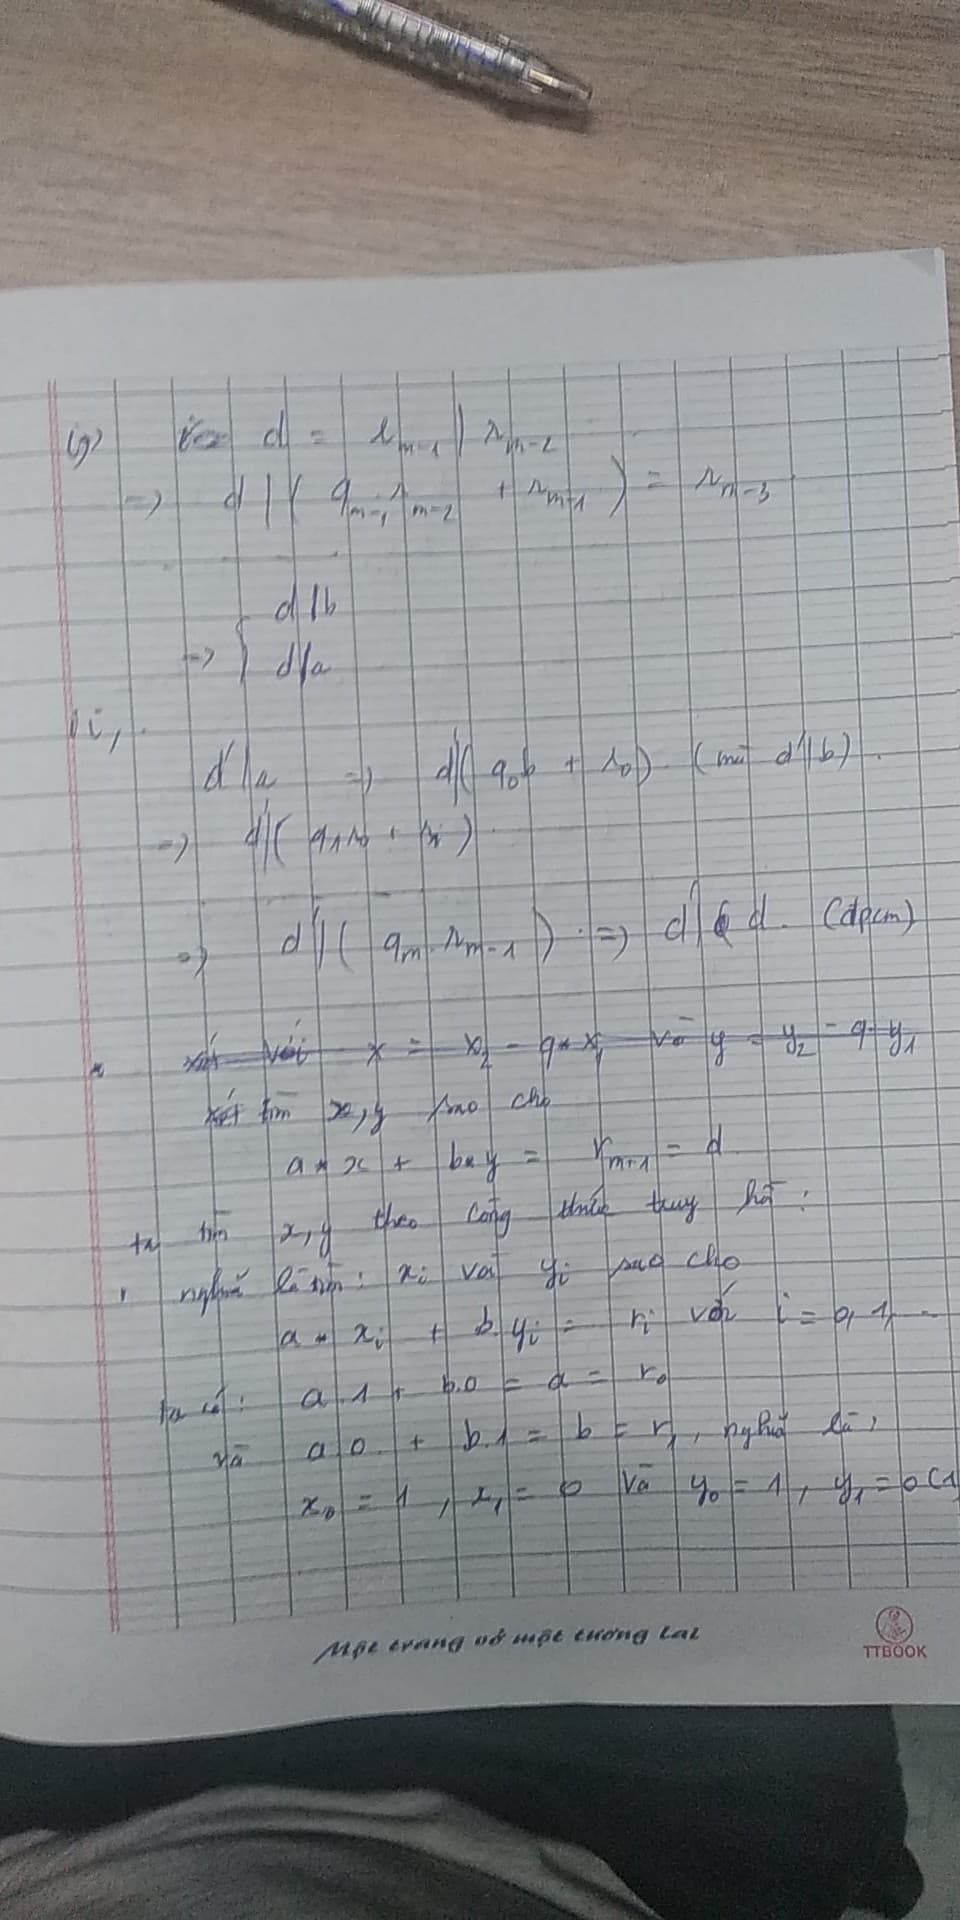 i,
d = r_{m-1} | r_{m-2}
=> d | ( q_{m-1} r_{m-2} + r_{m-1} ) = r_{m-3}
=> { d | b
d | a
ii,
d' | a => d' | ( q_0 b + r_0 ) ( mà d' | b )
=> d' | ( q_1 r_0 + r_1 )
=> d' | ( q_m . r_{m-1} ) => d' | d. (đpcm)
* xét với x = x_2 - q * x_1 và y = y_2 - q . y_1
xét tìm x, y sao cho
a * x + b * y = r_{m+1} = d
ta tìm x, y theo công thức truy hồi :
nghĩa là tìm : x_i và y_i sao cho
a * x_i + b . y_i = r_i với i = 0, 1, ..
ta có : a . 1 + b . 0 = a = r_0
và a . 0 + b . 1 = b = r_1 , nghĩa là,
x_0 = 1 , x_1 = 0 và y_0 = 1 , y_1 = 0 (1
Một trang vở một tương lai
TTBOOK